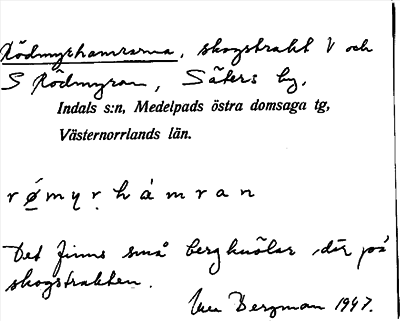 Rödmyrhamrarna, skogstrakt V och
S Rödmyran, Säters by,
Indals s:n, Medelpads östra domsaga tg,
Västernorrlands län.
r ǿ m y ṛ h á m r a n
Det finns små bergknölar där på
skogstrakten.
Bergman 1947.